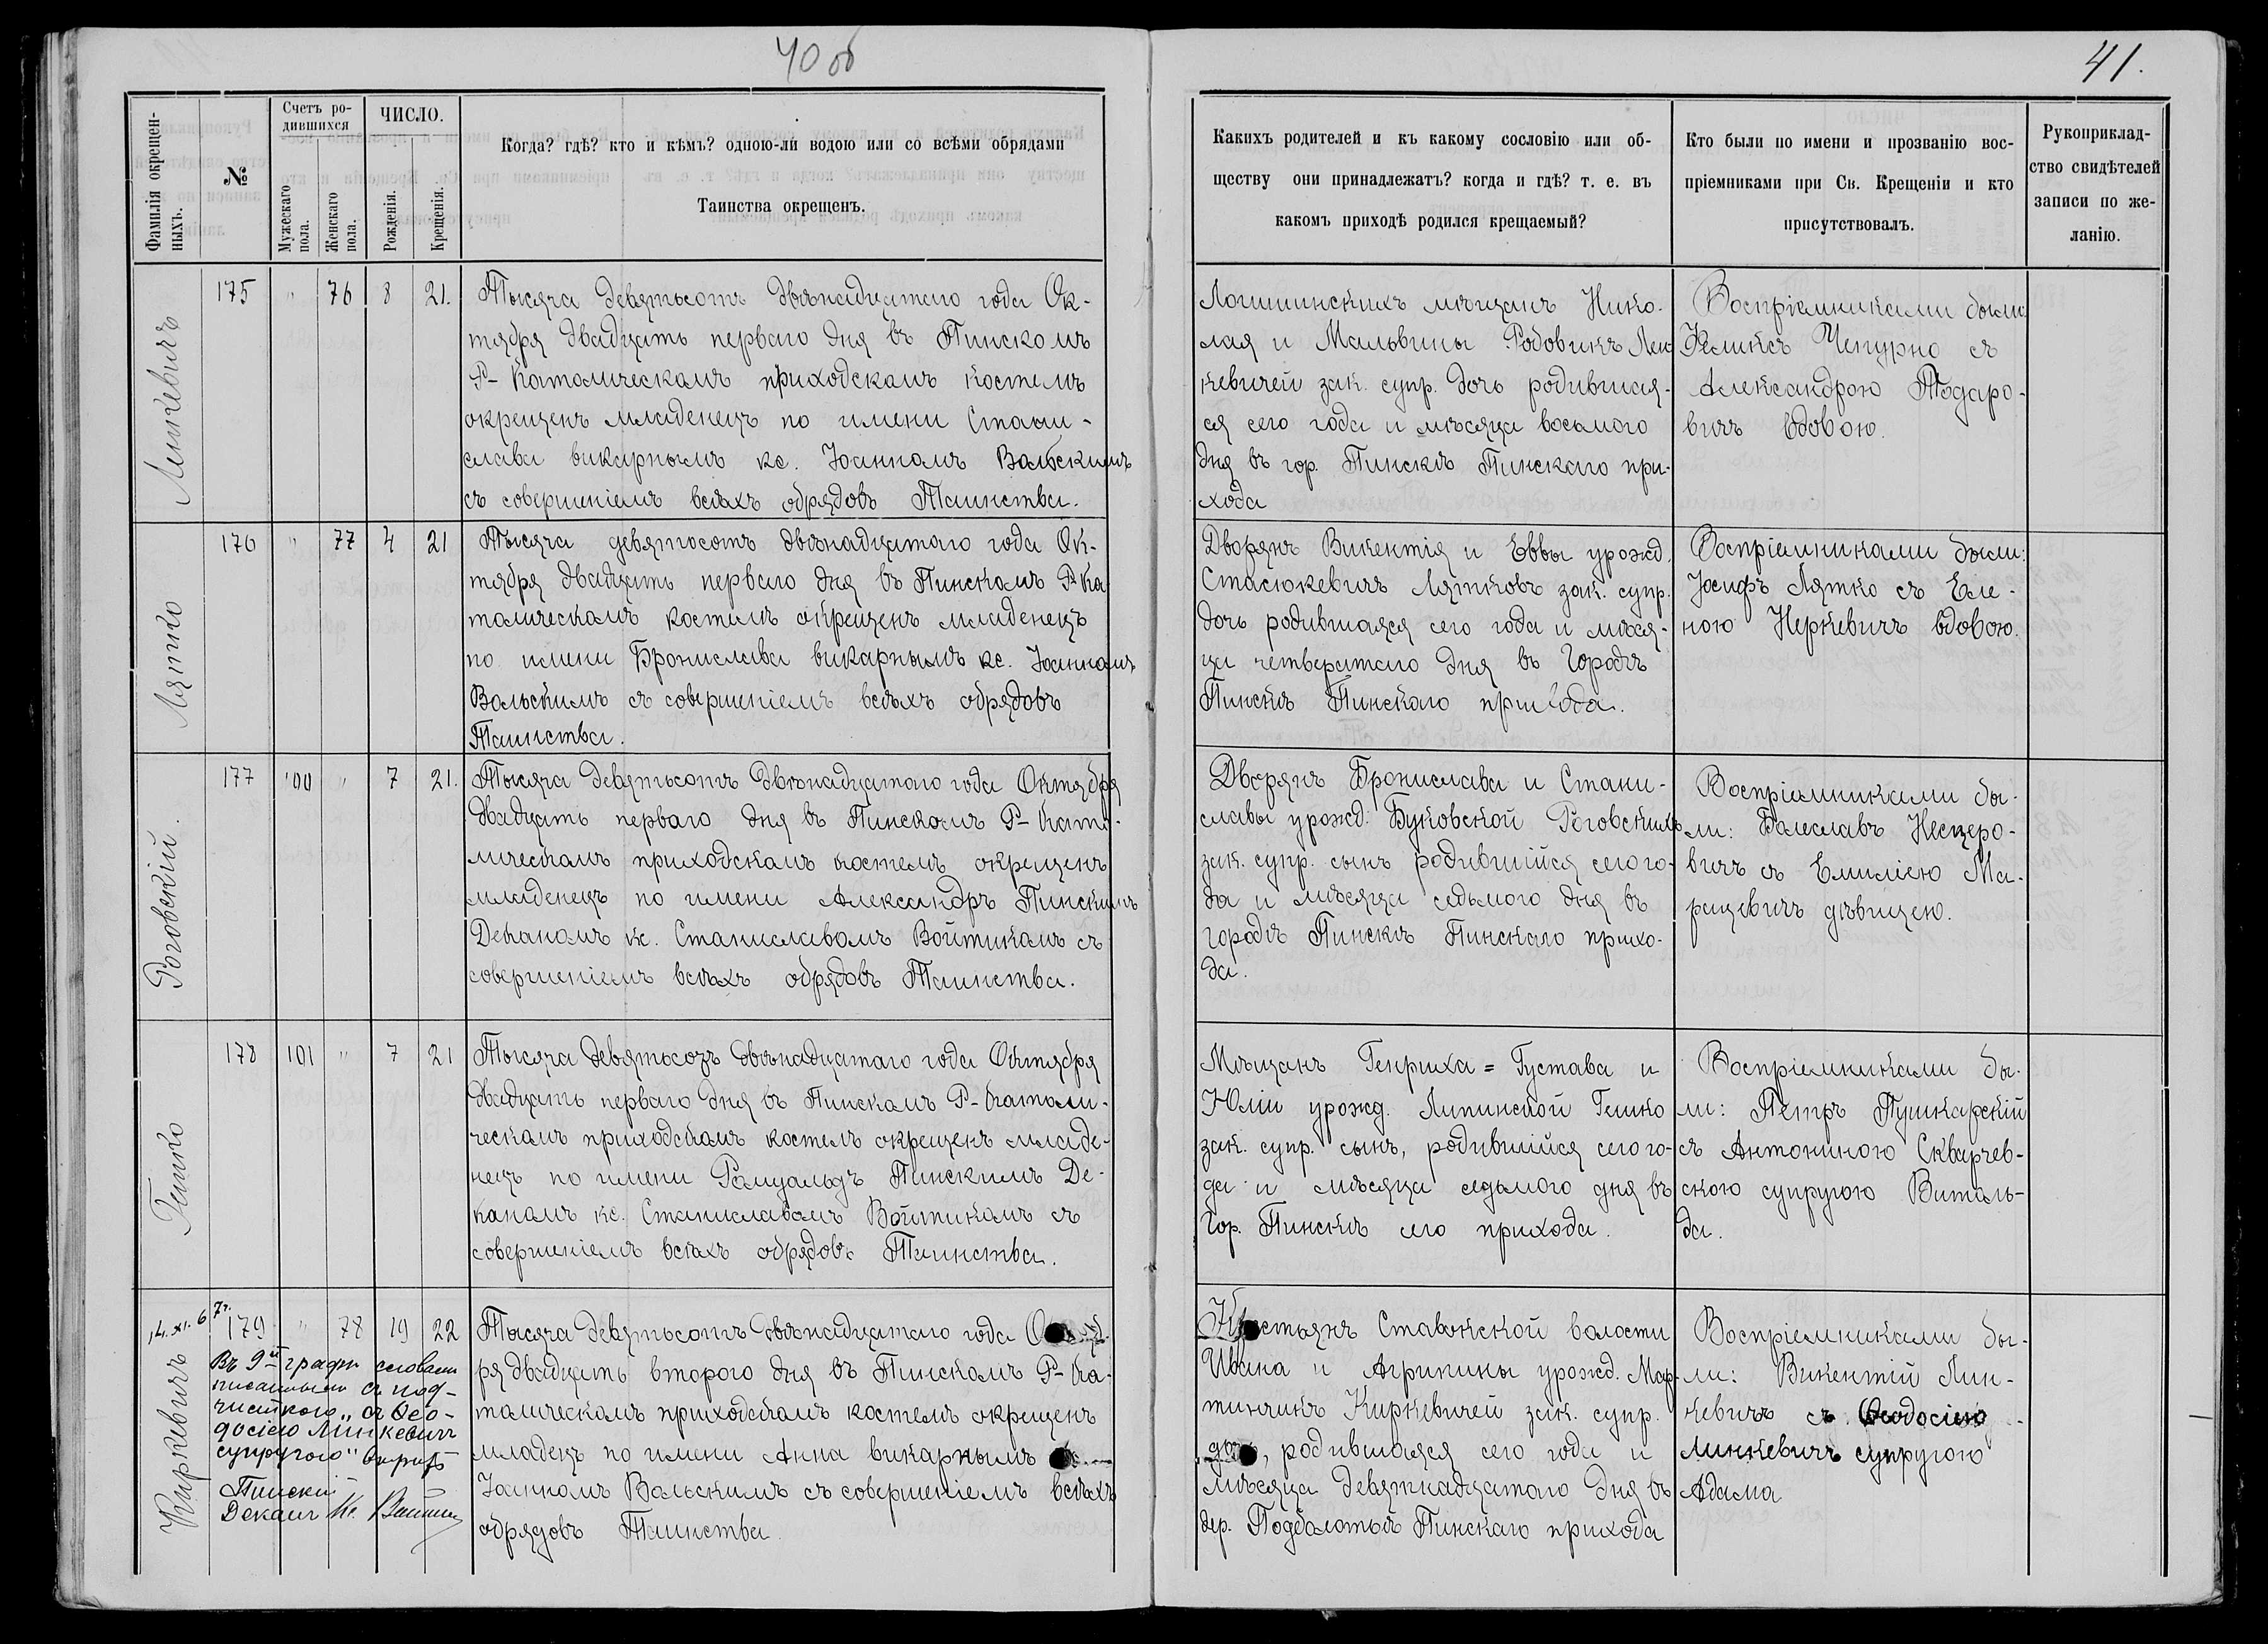 40 об
41.
Фамилія окрещен-
ныхъ.
№
Счетъ ро-
дившихся
Мужескаго
пола.
Женскаго
пола.
ЧИСЛО.
Рожденія.
Крещенія.
Когда? гдѣ? кто и кѣмъ? одною-ли водою или со всѣми обрядами
Таинства окрещенъ.
Какихъ родителей и къ какому сословію или об-
ществу они принадлежатъ? когда и гдѣ? т. е. въ
какомъ приходѣ родился крещаемый?
Кто были по имени и прозванію вос-
пріемниками при Св. Крещеніи и кто
присутствовалъ.
Рукоприклад-
ство свидѣтелей
записи по же-
ланію.
Ленкевичъ
175 " 76 8 21.
Тысяча девятьсотъ двѣнадцатаго года Ок-
тября двадцать перваго дня въ Пинскомъ
Р- Католическомъ приходскомъ костелѣ
окрещенъ младенецъ по имени Стани-
слава викарнымъ кс. Іоанномъ Вольскимъ
съ совершеніемъ всѣхъ обрядовъ Таинства.
Логишинскихъ мѣщанъ Нико-
лая и Мальвины Родовикъ Лен-
кевичей зак. супр. дочь родившая-
ся сего года и мѣсяца восьмого
дня въ гор. Пинскѣ Пинскаго при-
хода
Воспріемниками были:
Феликсъ Чепурно съ
Александрою Тодаро-
вичъ вдовою.
Лятко
176 " 77 4 21
Тысяча девятьсотъ двѣнадцатаго года Ок-
тября двадцать перваго дня въ Пинскомъ Р- Ка
толическомъ костелѣ окрещенъ младенецъ
по имени Бронислава викарнымъ кс. Іоанномъ
Вольскимъ съ совершеніемъ всѣхъ обрядовъ
Таинства.
Дворянъ Викентія и Еввы урожд.
Стасюкевичъ Лятковъ зак. супр.
дочь родившаяся сего года и мѣся-
ца четвертаго дня въ Городѣ
Пинскѣ Пинскаго прихода.
Воспріемниками были:
Іосифъ Лятко съ Еле-
ною Неркевичъ вдовою.
Роговскій.
177 100 " 7 21.
Тысяча девятьсотъ двѣнадцатаго года Октября
двадцать перваго дня въ Пинскомъ Р- Като-
лическомъ приходскомъ костелѣ окрещенъ
младенецъ по имени Александръ Пинскимъ
Деканомъ кс. Станиславомъ Войтикомъ съ
совершеніемъ всѣхъ обрядовъ Таинства.
Дворянъ Бронислава и Стани-
славы урожд. Буковской Роговскихъ
зак. супр. сынъ родившійся сего го-
да и мѣсяца седьмого дня въ
городѣ Пинскѣ Пинскаго прихо-
да.
Воспріемниками бы-
ли: Болеславъ Несцеро-
вичъ съ Емиліею Ма-
рцевичъ дѣвицею.
Гешко
178 101 " 7 21
Тысяча девятьсотъ двѣнадцатаго года Октября
двадцать перваго дня въ Пинскомъ Р- Католи-
ческомъ приходскомъ костелѣ окрещенъ младе-
нецъ по имени Ромуальдъ Пинскимъ Де-
каномъ кс. Станиславомъ Войтикомъ съ
совершеніемъ всѣхъ обрядовъ Таинства.
Мѣщанъ Генриха = Густава и
Юліи урожд. Липинской Гешко
зак. супр. сынъ, родившійся сего го-
да и мѣсяца седьмого дня въ
Гор. Пинскѣ сего прихода.
Воспріемниками бы-
ли: Петръ Пушкарскій
съ Антониною Скварчев-
скою супругою Виталь-
да.
Киркевичъ
179 " 78 19 22
Въ 9й графѣ
съ под-
чисткою „съ Ѳео-
досіею Линкевичъ
супругою"
Пинскій
Деканъ Кс.
Тысяча девятьсотъ двѣнадцатаго года
ря двадцать второго дня въ Пинскомъ Р- Ка-
толическомъ приходскомъ костелѣ окрещенъ
младенецъ по имени Анна викарнымъ
Іоанномъ Вольскимъ съ совершеніемъ всѣхъ
обрядовъ Таинства.
Крестьянъ Ставокской волости
Ивана и Агрипины урожд. Мар-
тинчикъ Киркевичей зак. супр.
дочь, родившаяся сего года и
мѣсяца девятнадцатаго дня въ
дер. Подболотьи Пинскаго прихода
Воспріемниками бы-
ли: Викентій Лин-
кевичъ съ Ѳеодосіею
Линкевичъ супругою
Адама